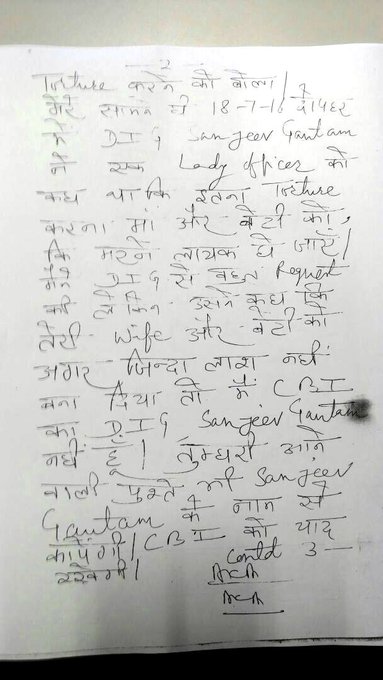 2
Torture करने को बोला।
मेरे सामने ही 18-7-16 दोपहर
में DIG Sanjeev Gautam
ने एक Lady officer को
कहा था कि इतना Torture
करना मां और बेटी को,
कि मरने लायक हो जाएं।
मैंने DIG से बहुत Request
की लेकिन उसने कहा कि
तेरी Wife और बेटी को
अगर जिन्दा लाश नहीं
बना दिया तो मैं CBI
का DIG Sanjeev Gautam
नहीं हूं। तुम्हारी आने
वाली पुश्तें भी Sanjeev
Gautam के नाम से
कांपेगी। CBI को याद
रखेगी।
Contd 3